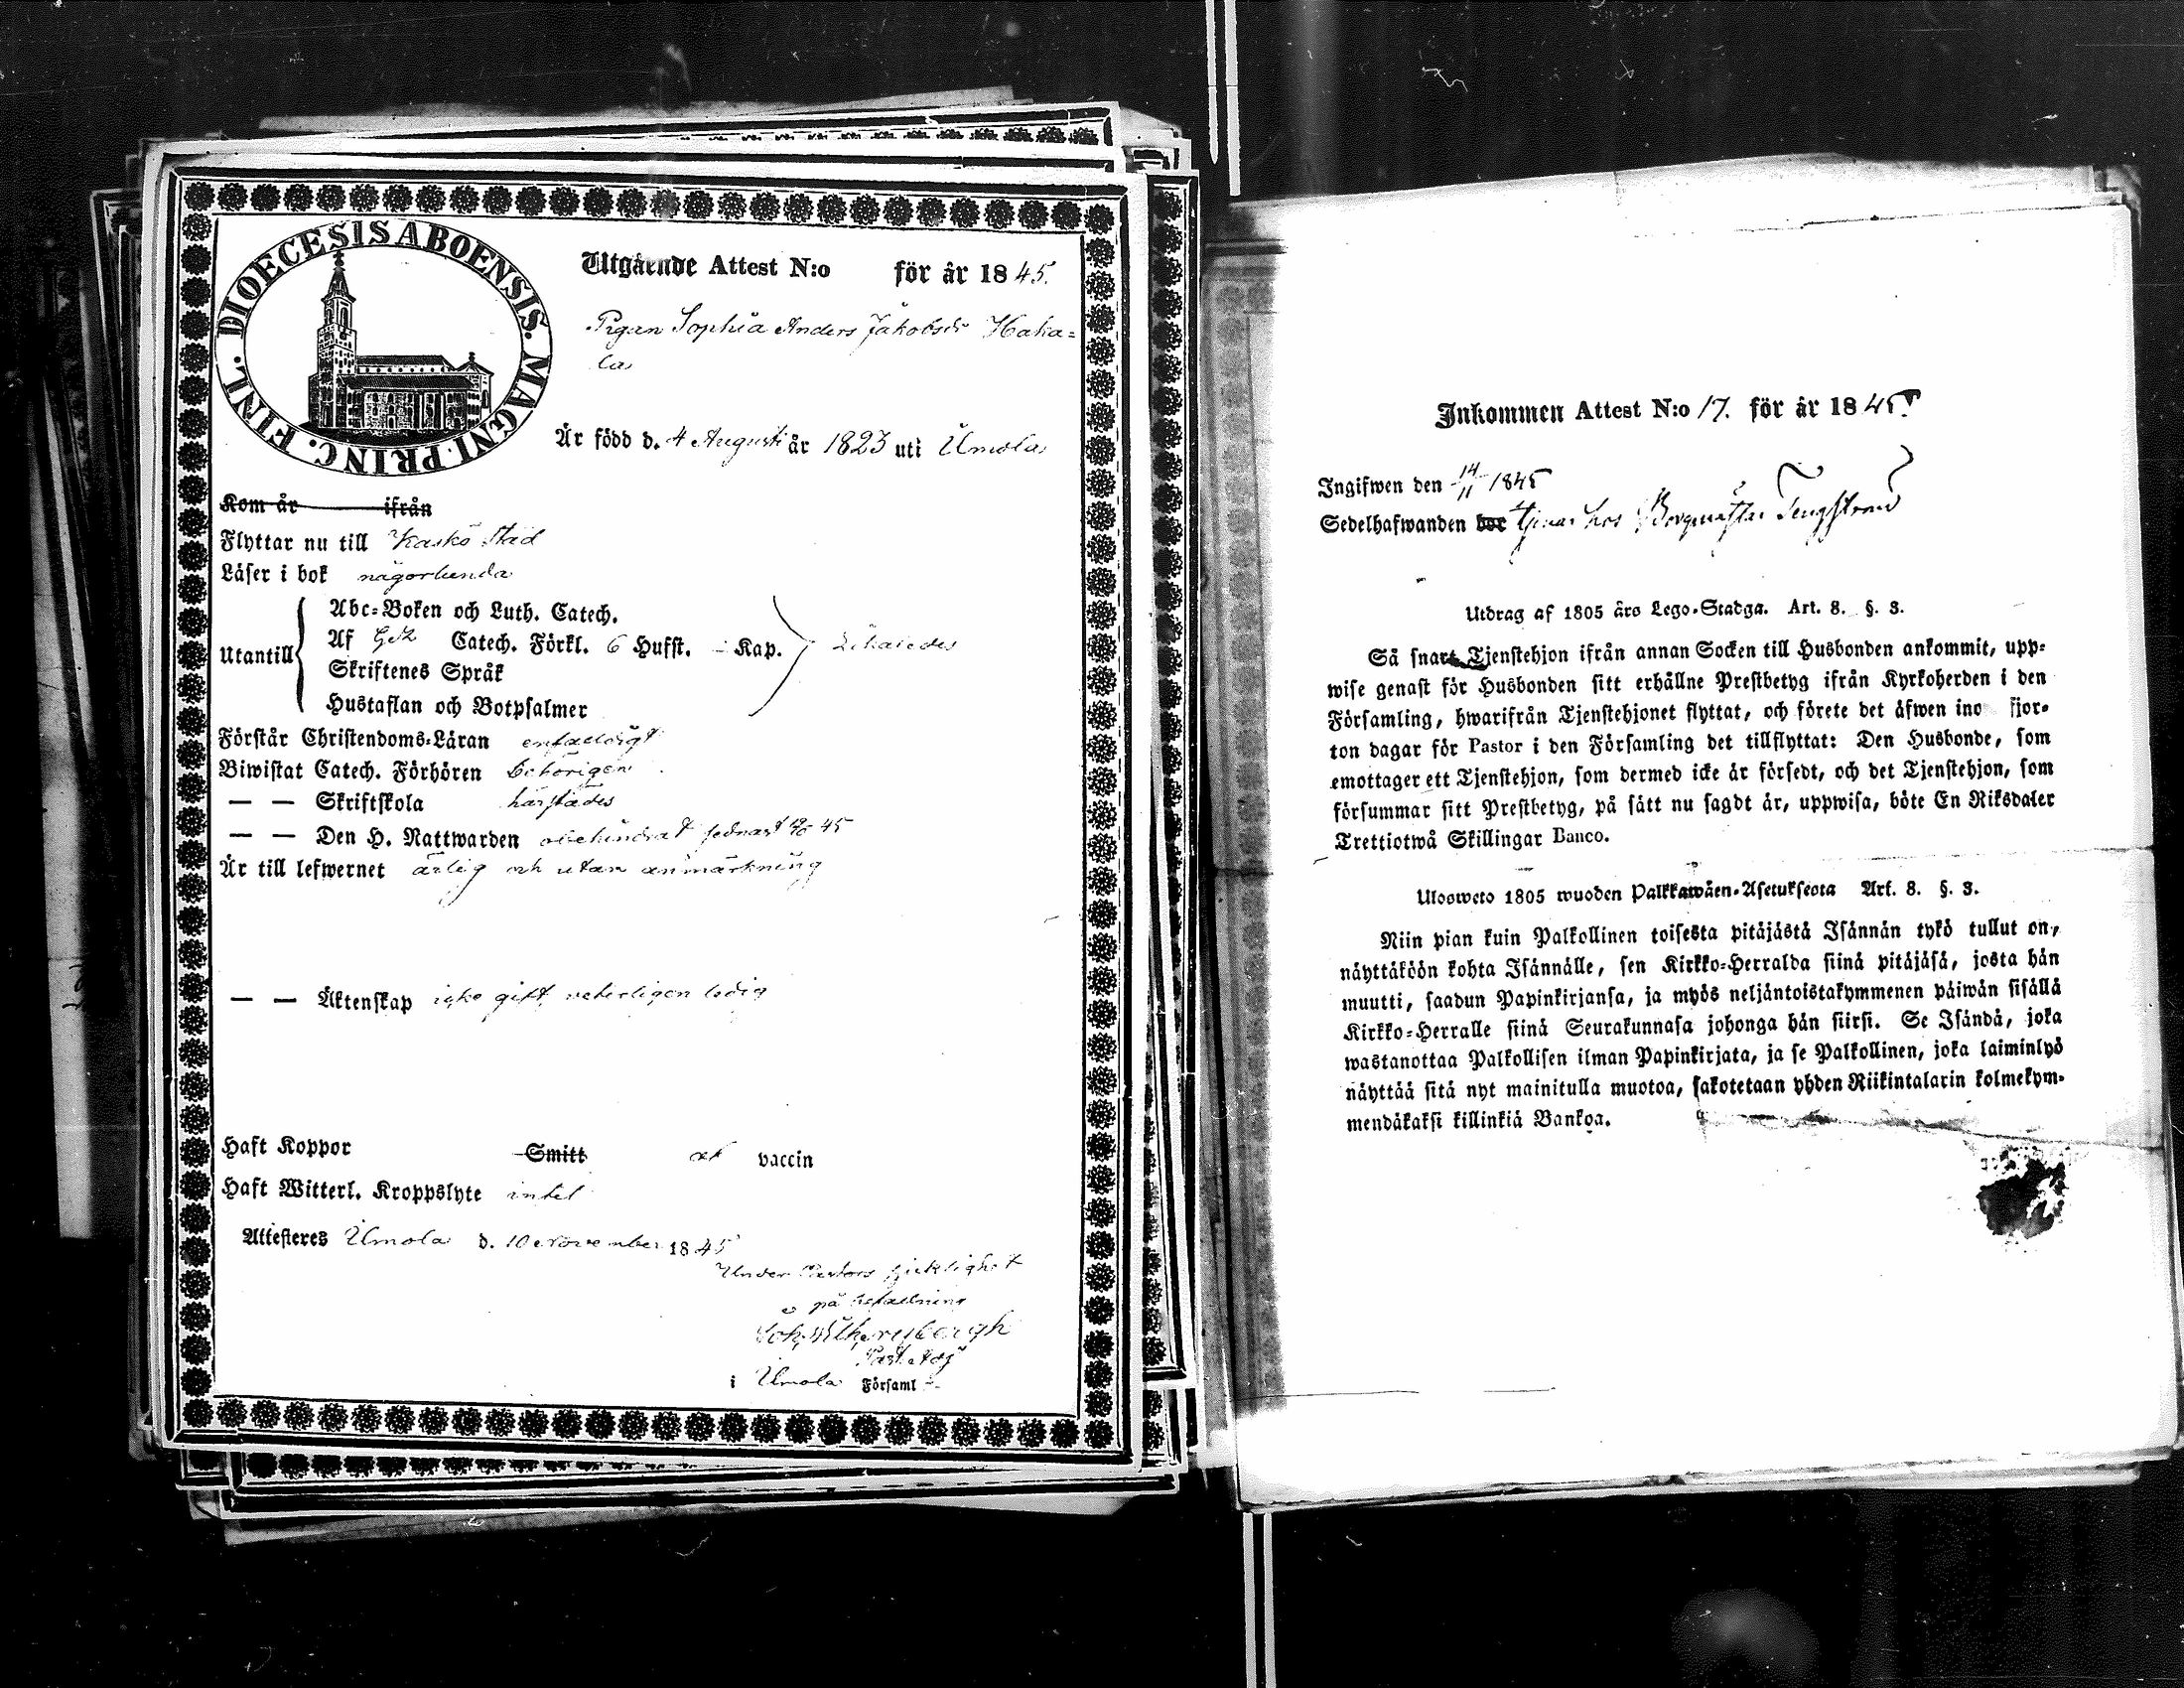 DIOECESIS ABOENSIS. MAGNI PRINC. FINL.
Utgående Attest N:o för år 1845.
Pigan Sophia Anders Jakobsdr Haka=
la
Är född d. 4 Augusti år 1823 uti Ilmola
Kom år ifrån
Flyttar nu till Kaskö Stad
Läser i bok någorlunda
Utantill
Abc=Boken och Luth. Catech.
Af Catech. Förkl. 6 Hufst. Kap. Likaledes
Skriftenes Språk
Hustaflan och Botpsalmer
Förstår Christendoms=Läran enfaldigt
Biwistat Catech. Förhören behörigen
— — Skriftskola härstädes
— — Den H. Nattwarden obehindrat sednast 45
Är till lefwernet ärlig och utan anmärkning
— — Äktenskap icke gift, veterligen ledig
Haft Koppor Smitt af vaccin
Haft Witterl. Kroppslyte intet
Attesteres Ilmola d. 10 November 1845
Under Pastors sjuklighet
o på befallning
Past. Adj
i Ilmola Församl
Inkommen Attest N:o 17. för år 1845.
Ingifwen den 14/11 1845
Sedelhafwanden bor tjenar hos Borgmästar Tengström
Utdrag af 1805 års Lego-Stadga. Art. 8. §. 3.
Så snart Tjenstehjon ifrån annan Socken till Husbonden ankommit, upp=
wise genast för Husbonden sitt erhållne Prestbetyg ifrån Kyrkoherden i den
Församling, hwarifrån Tjenstehjonet flyttat, och förete det äfwen ino fjor=
ton dagar för Pastor i den Församling det tillflyttat: Den Husbonde, som
emottager ett Tjenstehjon, som dermed icke är försedt, och det Tjenstehjon, som
försummar sitt Prestbetyg, på sätt nu sagdt är, uppwisa, böte En Riksdaler
Trettiotwå Skillingar Banco.
Ulosweto 1805 wuoden Palkkawäen-Asetuksesta Art. 8. §. 3.
Niin pian kuin Palkollinen toisesta pitäjästä Isännän tykö tullut on,
näyttäköön kohta Isännälle, sen Kirkko=Herralda siinä pitäjäsä, josta hän
muutti, saadun Papinkirjansa, ja myös neljäntoistakymmenen päiwän sisällä
Kirkko=Herralle siinä Seurakunnasa johonga hän siirsi. Se Isändä, joka
wastanottaa Palkollisen ilman Papinkirjata, ja se Palkollinen, joka laiminlyö
näyttää sitä nyt mainitulla muotoa, sakotetaan yhden Riikintalarin kolmekym=
mendäkaksi killinkiä Bankoa.